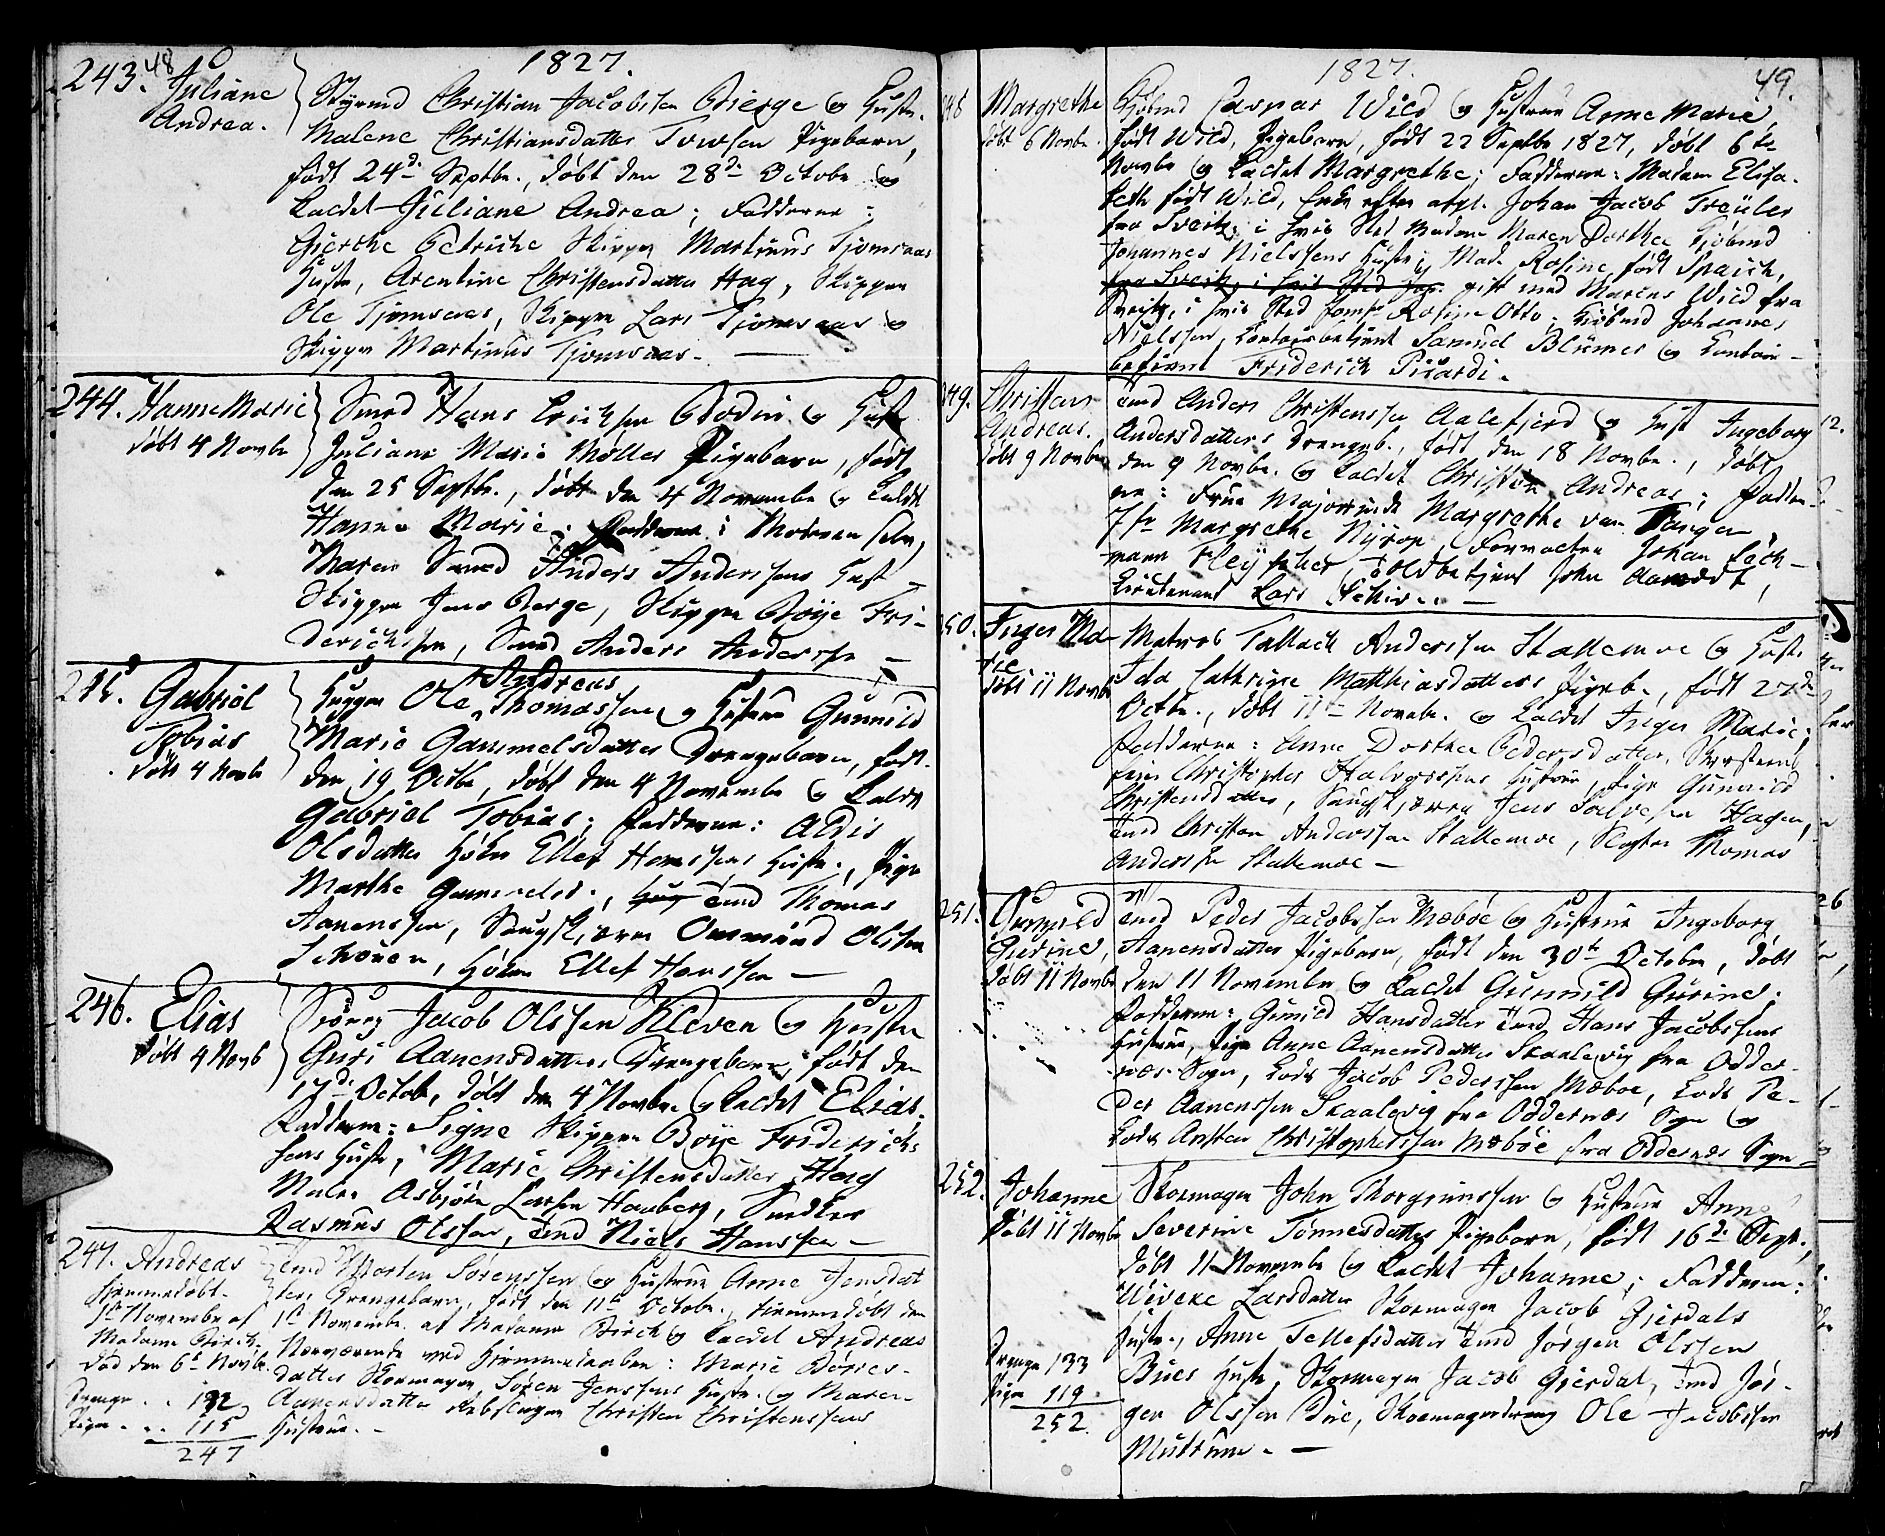 48 1827.
243. Juliane Andrea. Styrmd Christian Jacobsen Bierge og Hustr.
Malene Christiansdatter Pigebarn,
født 24de Septbr., døbt den 28de Octobr og
kaldet Juliane Andrea; Fadderne:
Giertke Petriche Skipper Martinus Tjomsaas
Hustr., Arentine Christensdatter Hag, Skipper
Ole Tjomsaas, Skipper Lars Tjomsaas og
Skipper Martinus Tjomsaas. —
244. Hanne Marie døbt 4 Novbr
Smed Hans Erichsen Bodin og Hustr
Juliane Marie Møller Pigebarn, født
den 25 Septbr., døbt den 4 Novembr og kaldet
Hanne Marie; Fadderne: Moderen selv,
Maren Smed Anders Andersens Hust
Skipper Jens Berge, Skipper Boye Fri-
derichsen, Smed Anders Andersen —
245. Gabriel Tobias døbt 4 Novbr
Ole Andreas Thomassen og Hustrue Gunnild
Marie Gammelsdatters Drengebarn, født
den 19 Octbr, døbt den 4 Novembr og kaldet
Gabriel Tobias; Fadderne: Aldis
Olsdatter Ellef Hanssens Hustr., Pige
Marthe Gammelsd., Tmd Thomas
Aanensen, Omund Olsen
Ellef Hanssen —
246. Elias døbt 4 Novb
Jacob Olssen Kleven og Hustr
Guri Aanensdatters Drengebarn, født den
17de Octob, døbt den 4 Novbr. og kaldet Elias.
Fadderne: Signe Skipper Boye Friderichs-
sens Hustr., Marie Christensdatter Hag
Asbjørn Larsen Hauberg, Snedker
Rasmus Olssen, Tmd Niels Hanssen —
247. Andreas hjemmedøbt 1ste Novembr af Madame Birch. død den 6te Novbr.
Tmd Morten Sørenssen og Hustrue Anne Jensdat
ters Drengebarn, født den 11te Octobr., hjemmedøbt den
1ste Novembr. af Madame Birch og kaldet Andreas
Nærværende ved Hjemmedaaben: Marie Børres-
datter Skomager Søren Jenssens Hustr. og Maren
Aanensdatter Rebslager Christen Christenssens
Hustrue. —
Drenge . . 132
Pige . . . 115
247
1827. 49.
248 Margrethe døbt 6 Novbr.
Kjøbmd Caspar Wild og Hustrue Anne Marie,
født Wild, Pigebarn, født 22 Septbr 1827, døbt 6te
Novbr og kaldet Margrethe; Fadderne: Madam Elisa-
beth født Wild, Enke efter afgl. Johan Jacob Treüler
fra Sveitz, i hvis Sted Madame Maren Dorthea Kjøbmd
Johannes Nielssens Hustr.; Mad. Rosine født Spaich,
fra Sveitz, i hvis Sted Jom gift med Marcus Wild fra
Sveitz, i hvis Sted Jomfr Rosine Otto; Kjøbmd Johannes
Nielssen, Contoirbetjent Samuel Blümer og Contoir-
betjent Friderich Picardi.
249. Christian Andreas. døbt 9 Novbr
Tmd Anders Christenssen Aalefjerd og Hust Ingeborg
Andersdatters Drengeb., født den 18 Novbr., døbt
den 9 Novbr. og kaldet Christian Andreas; Fadder-
ne: Frue Majorinde Margrethe van Tangen
Jfr Margrethe Nyrop, Johan
Fleyscher, Toldbetjent John Aamodt,
Lieutenant Lars —
250. Inger Marie døbt 11 Novbr
Matros Tallach Anderssen Stallemoe og Hustr
Ida Cathrine Matthiasdatters Pigeb., født 27de
Octbr., døbt 11te Novbr. og kaldet Inger Marie;
Fadderne: Anne Dorthea Pedersdatter,
Christopher Halvorssens Hustrue, Pige Gunnild
Christensdatter, Jens Salvesen Hagen,
Tmd Christen Anderssen Stallemoe, Thomas
Anderssen Stallemoe —
251. Gunnild Gurine, døbt 11 Novbr
Tmd Peder Jacobssen Mæbøe og Hustrue Ingeborg
Aanensdatter Pigebarn, født den 30te October, døbt
den 11 Novembr og kaldet Gunnild Gurine;
Fadderne: Gunild Hansdatter Tmd Hans Jacobssens
Hustrue, Pige Anne Aanensdatter Skaalevig fra Odder-
næs Sogn, Lods Jacob Pederssen Mæboe, Lods Pe-
der Aanenssen Skaalevig fra Oddernæs Sogn og
Lods Ansten Christophersen Mæbøe fra Oddernæs Sogn
252. Johanne døbt 11 Novbr
Skomager John Thorgrimssen og Hustrue Anne
Severine Tønnesdatters Pigebarn, født 16de Sept.,
døbt 11 Novembr og kaldet Johanne; Fadderne:
Wiveke Larsdatter Skomager Jacob Gjerdals
Hustr., Anne Tellefsdatter Tmd Jørgen Olssen
Bues Hustr., Skomager Jacob Gjerdal, Tmd Jør-
gen Olssen Bue, Skomagerdreng Ole Jacobssen
Drenge 133
Pige 119
252.